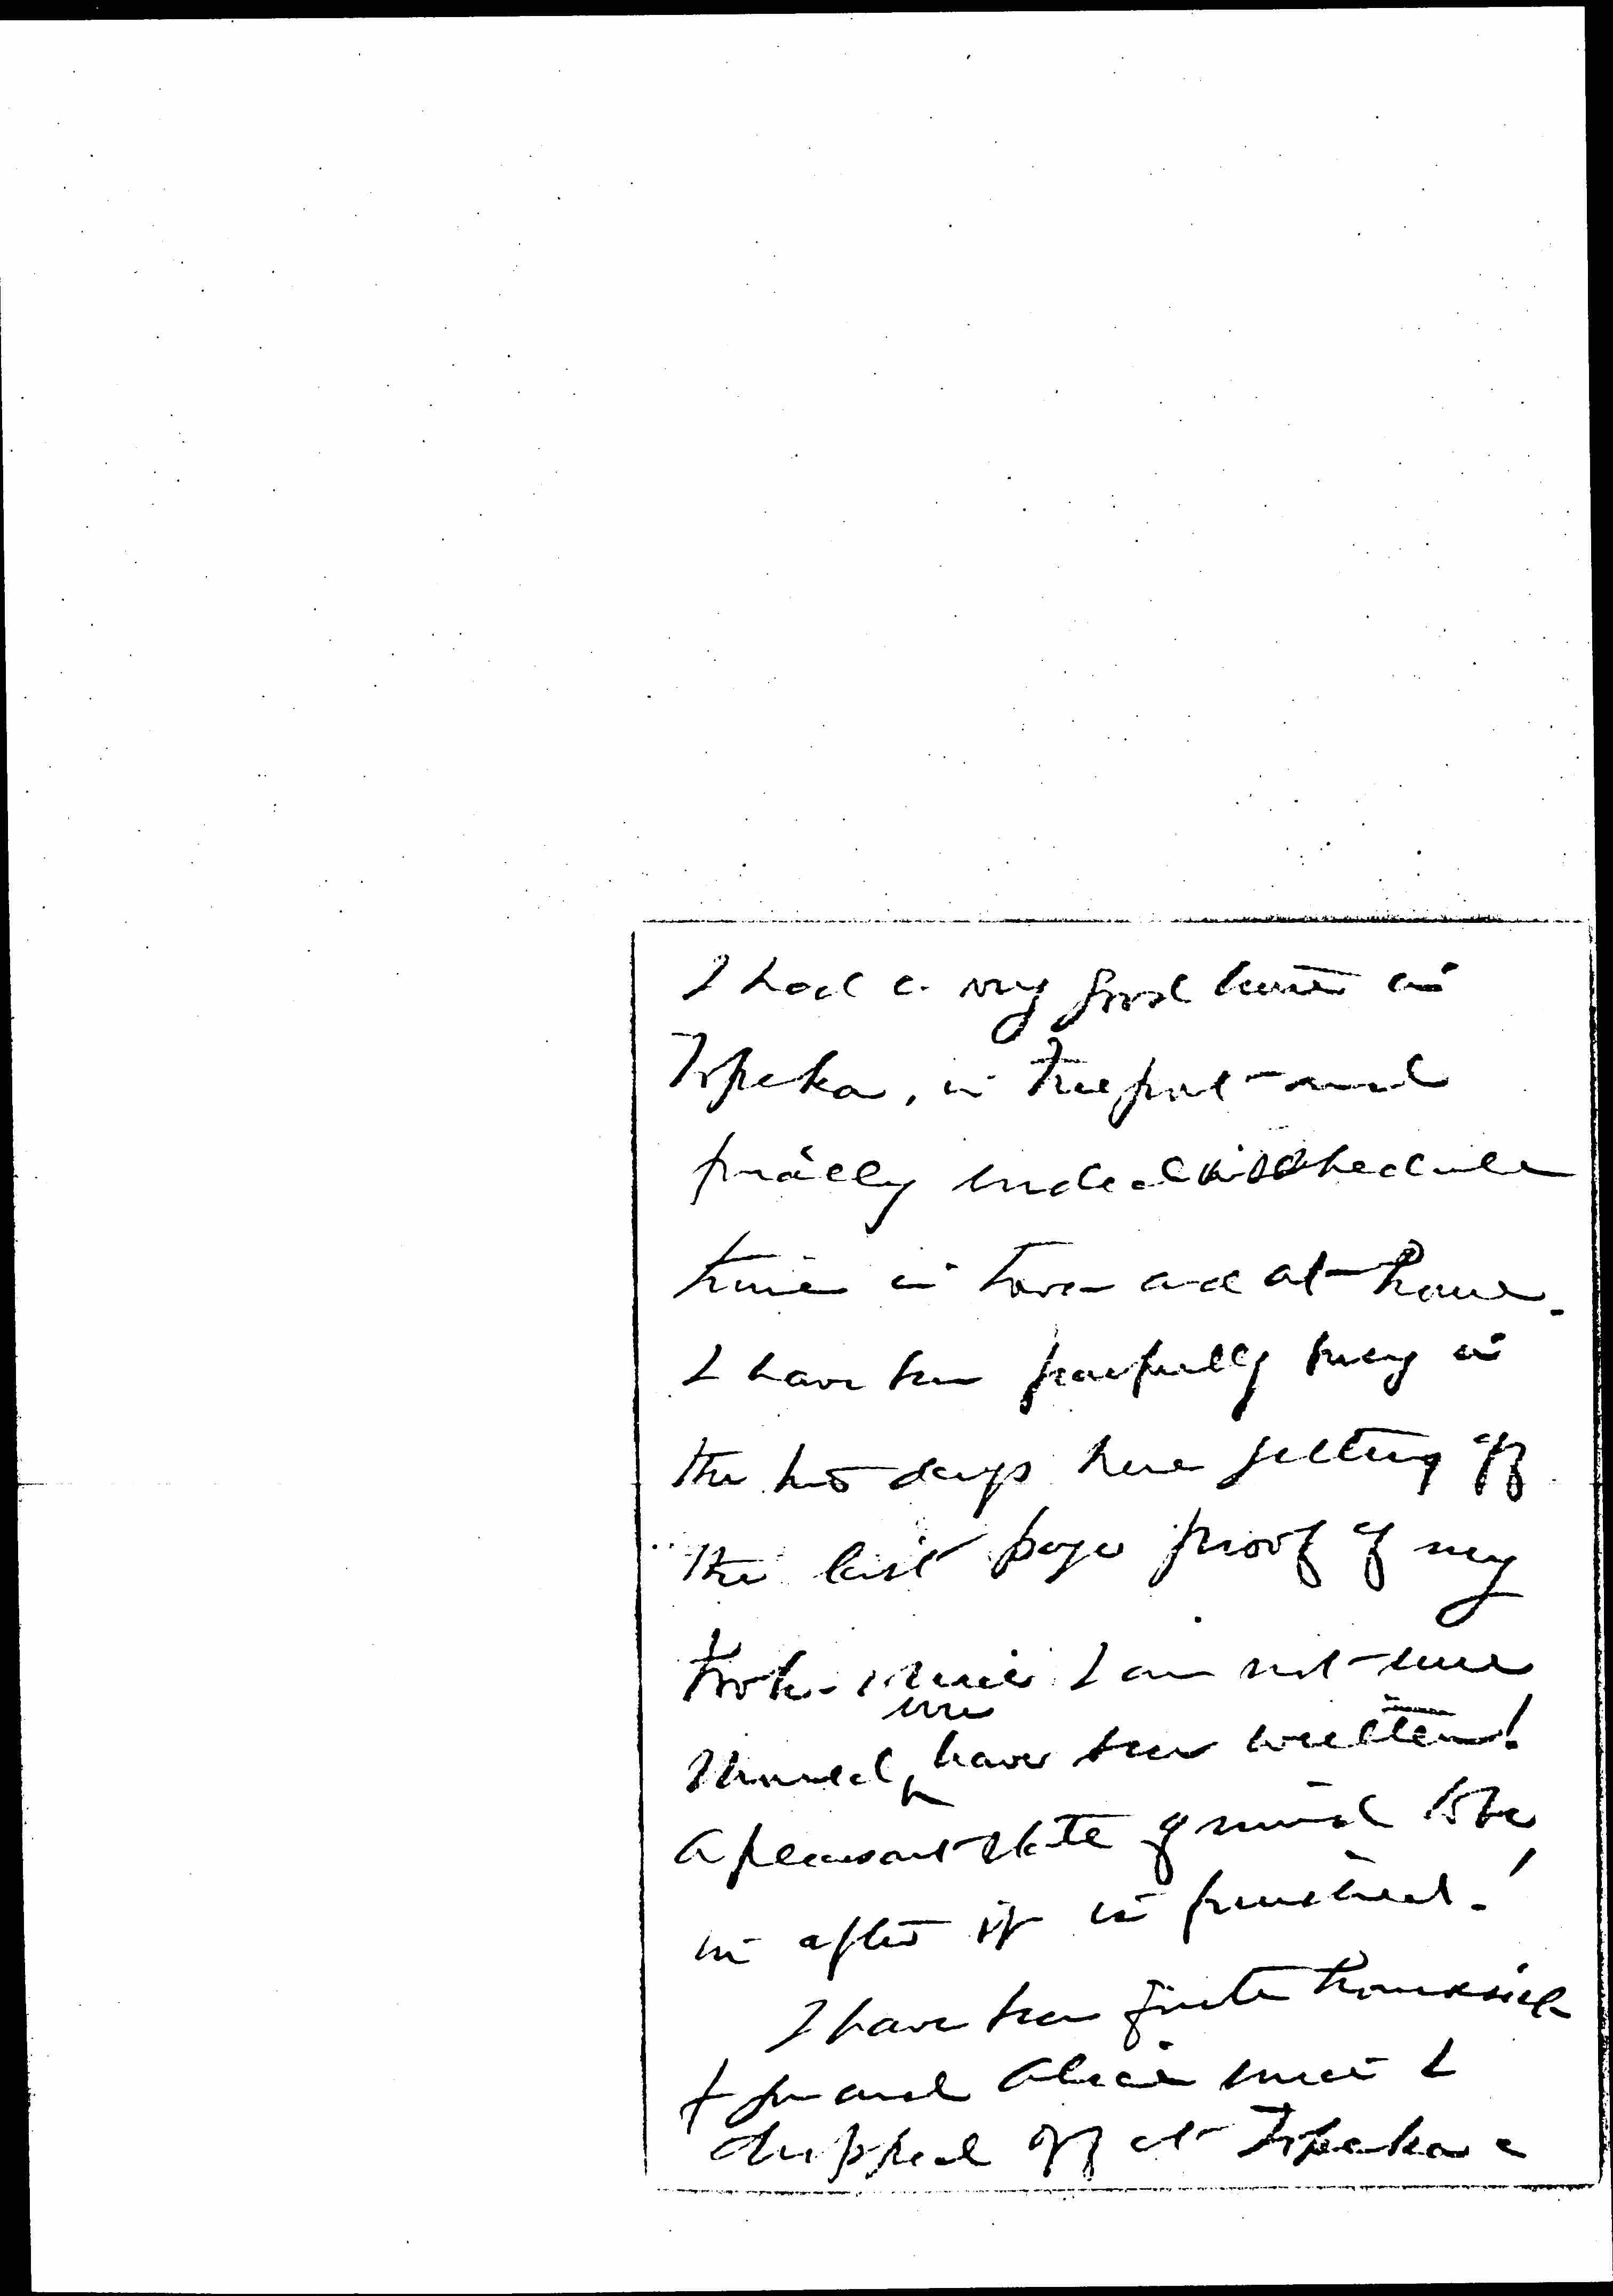 I had a very good time in
Topeka, in Freeport and
finally
time in town and at home.
I have been fearfully busy in
the two days here getting off
the last page proof of my
book - I am not sure
should ever have been written!
a pleasant state of mind to be
in after it is finished!
I have been quite homesick
for and Alice since I
dropped off at Topeka -